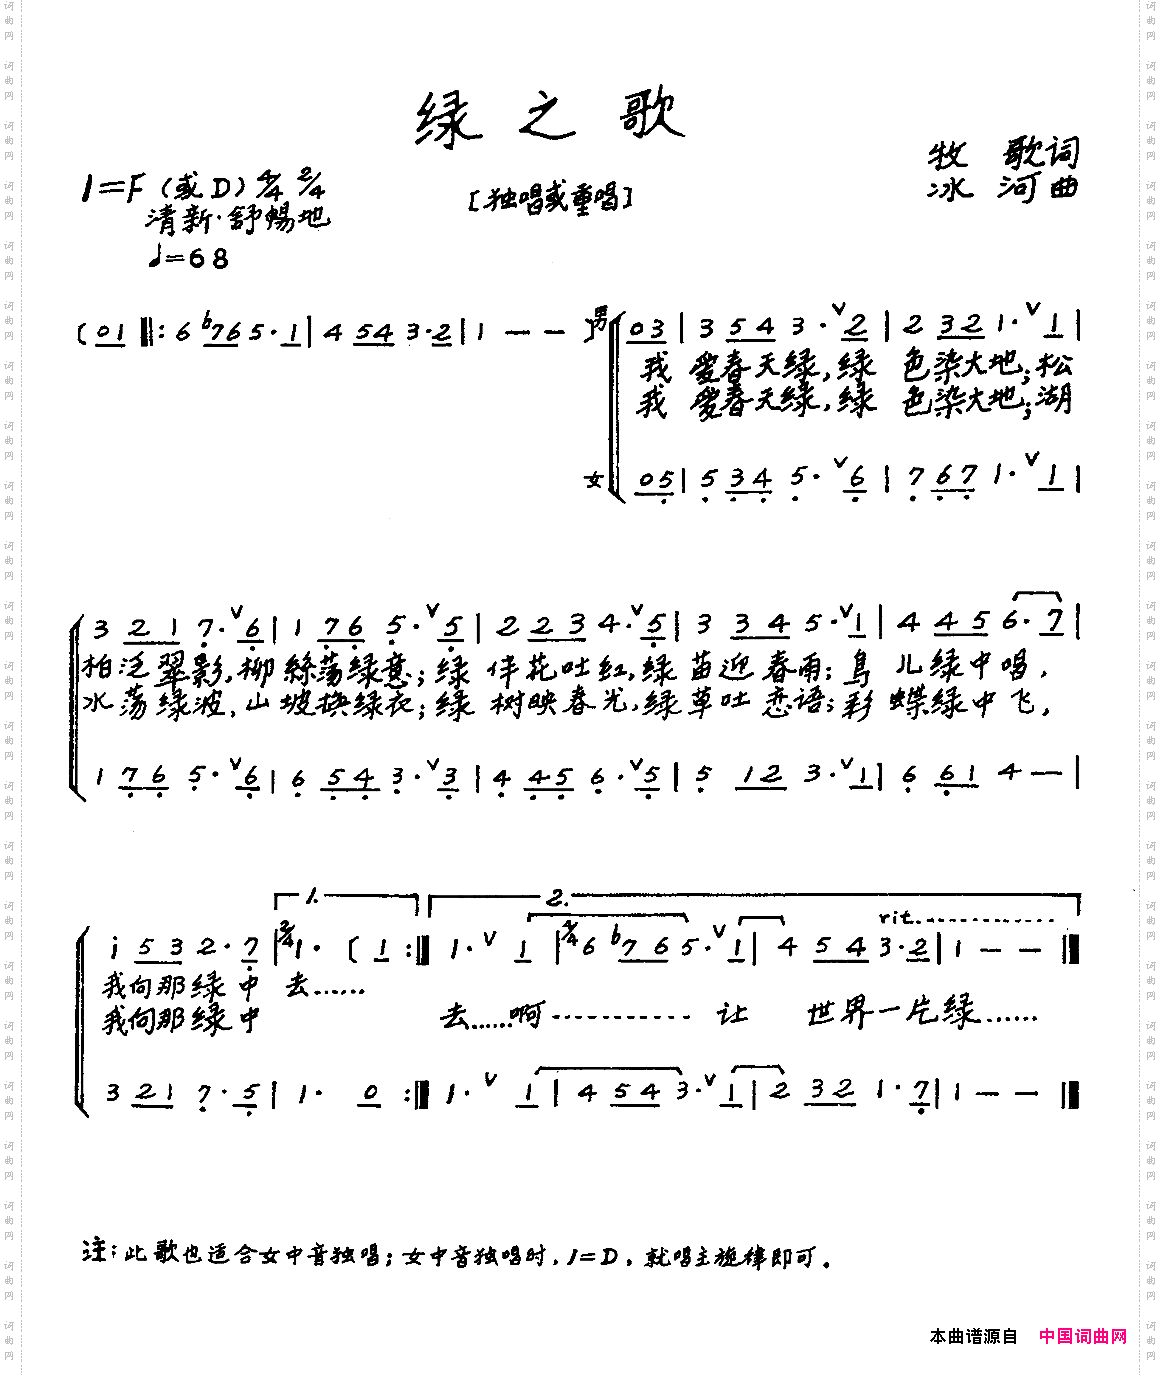 绿之歌
牧 歌词
冰 河曲
1=F（或D）4/4 2/4
清新·舒暢地
♩=68
[独唱或重唱]
(01 ‖: 6 b765·1 | 4 543·2 | 1 — — )
男 03 | 3 5 4 3·ˇ2 | 2 3 2 1·ˇ1 |
我 爱春天绿,绿 色染大地;松
我 爱春天绿,绿 色染大地;湖
女 05 | 5 3 4 5·ˇ6 | 7 6 7 1·ˇ1 |
3 2 1 7·ˇ6 | 1 7 6 5·ˇ5 | 2 2 3 4·ˇ5 | 3 3 4 5·ˇ1 | 4 4 5 6·7 |
柏泛翠影,柳絲荡绿意;绿 伴花吐红,绿 苗迎春雨;鸟 儿绿中唱,
水荡绿波,山坡换绿衣;绿 树映春光,绿草吐恋语;彩 蝶绿中飞,
1 7 6 5·ˇ6 | 6 5 4 3·ˇ3 | 4 4 5 6·ˇ5 | 5 1 2 3·ˇ1 | 6 6 1 4 — |
1. 2.
rit.
i 5 3 2·7 | 2/4 1· ( 1 :‖ 1·ˇ1 | 4/4 6 b7 6 5·ˇ1 | 4 5 4 3·2 | 1 — — ‖
我向那绿中 去……
我向那绿中 去……啊………… 让 世界一片绿……
3 2 1 7·5 | 1· 0 :‖ 1·ˇ1 | 4 5 4 3·ˇ1 | 2 3 2 1·7 | 1 — — ‖
注:此歌也适合女中音独唱;女中音独唱时,1=D,就唱主旋律即可.
本曲谱源自 中国词曲网
词曲网